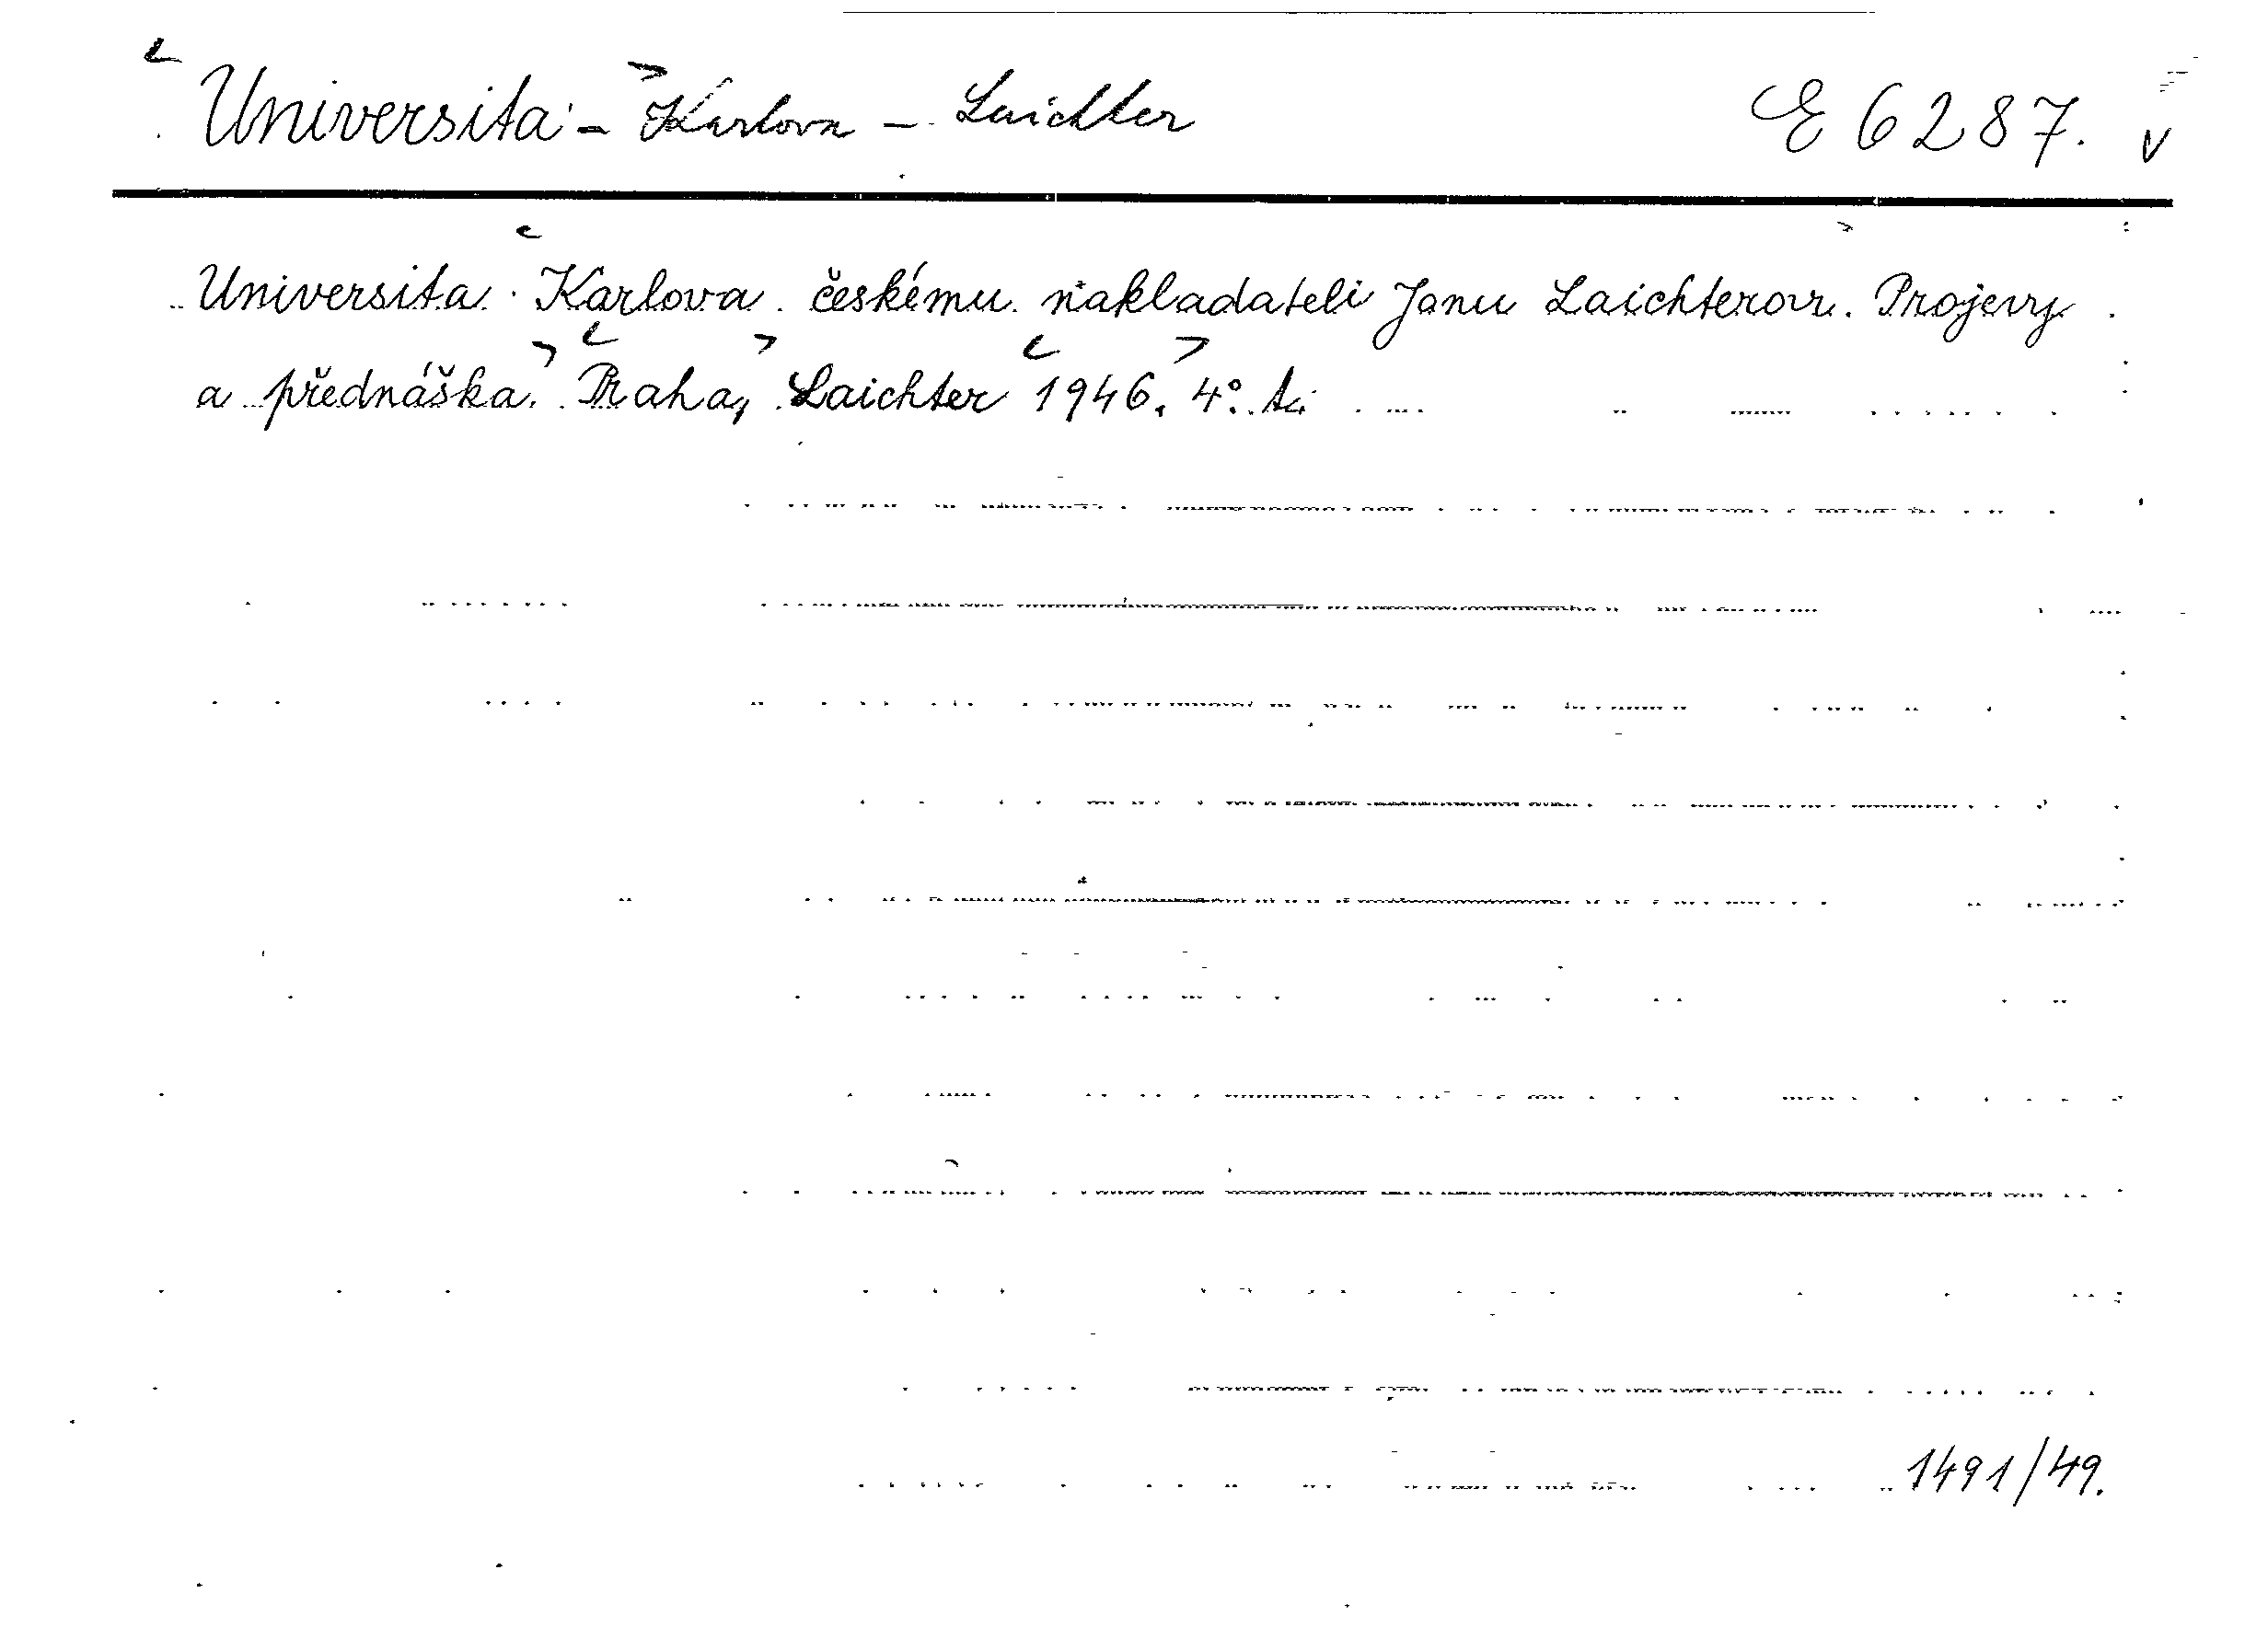 Universita - Karlova - Laichter E 6287. v
Universita Karlova českému nakladateli Janu Laichterovi. Projevy
a přednáška. Praha, Laichter 1946. 4°.
1491/49.